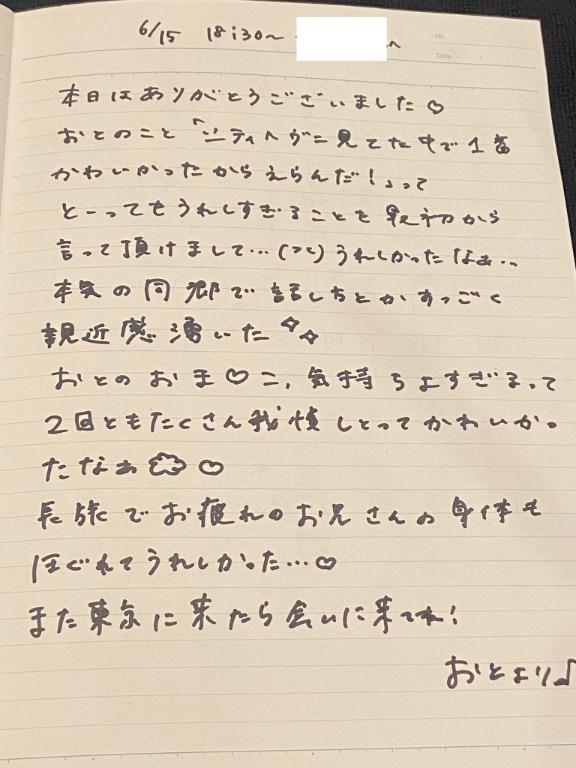 6/15 18:30〜 へ
No.
Date
本日はありがとうございました♡
おとのこと「シティヘヴン見てた中で1番
かわいかったからえらんだ!」って
とーってもうれしすぎることを最初から
言って頂けまして…(つと)うれしかったなぁ..
本気の同郷で話しちとかすっごく
親近感湧いた✧✧
おとのおま♡こ、気持ちよすぎるって
2回ともたくさん我慢しとってかわいかっ
たなぁ♡
長旅でお疲れのお兄さんの身体も
ほぐれてうれしかった…♡
また東京に来たら会いに来てね!
おとより♪